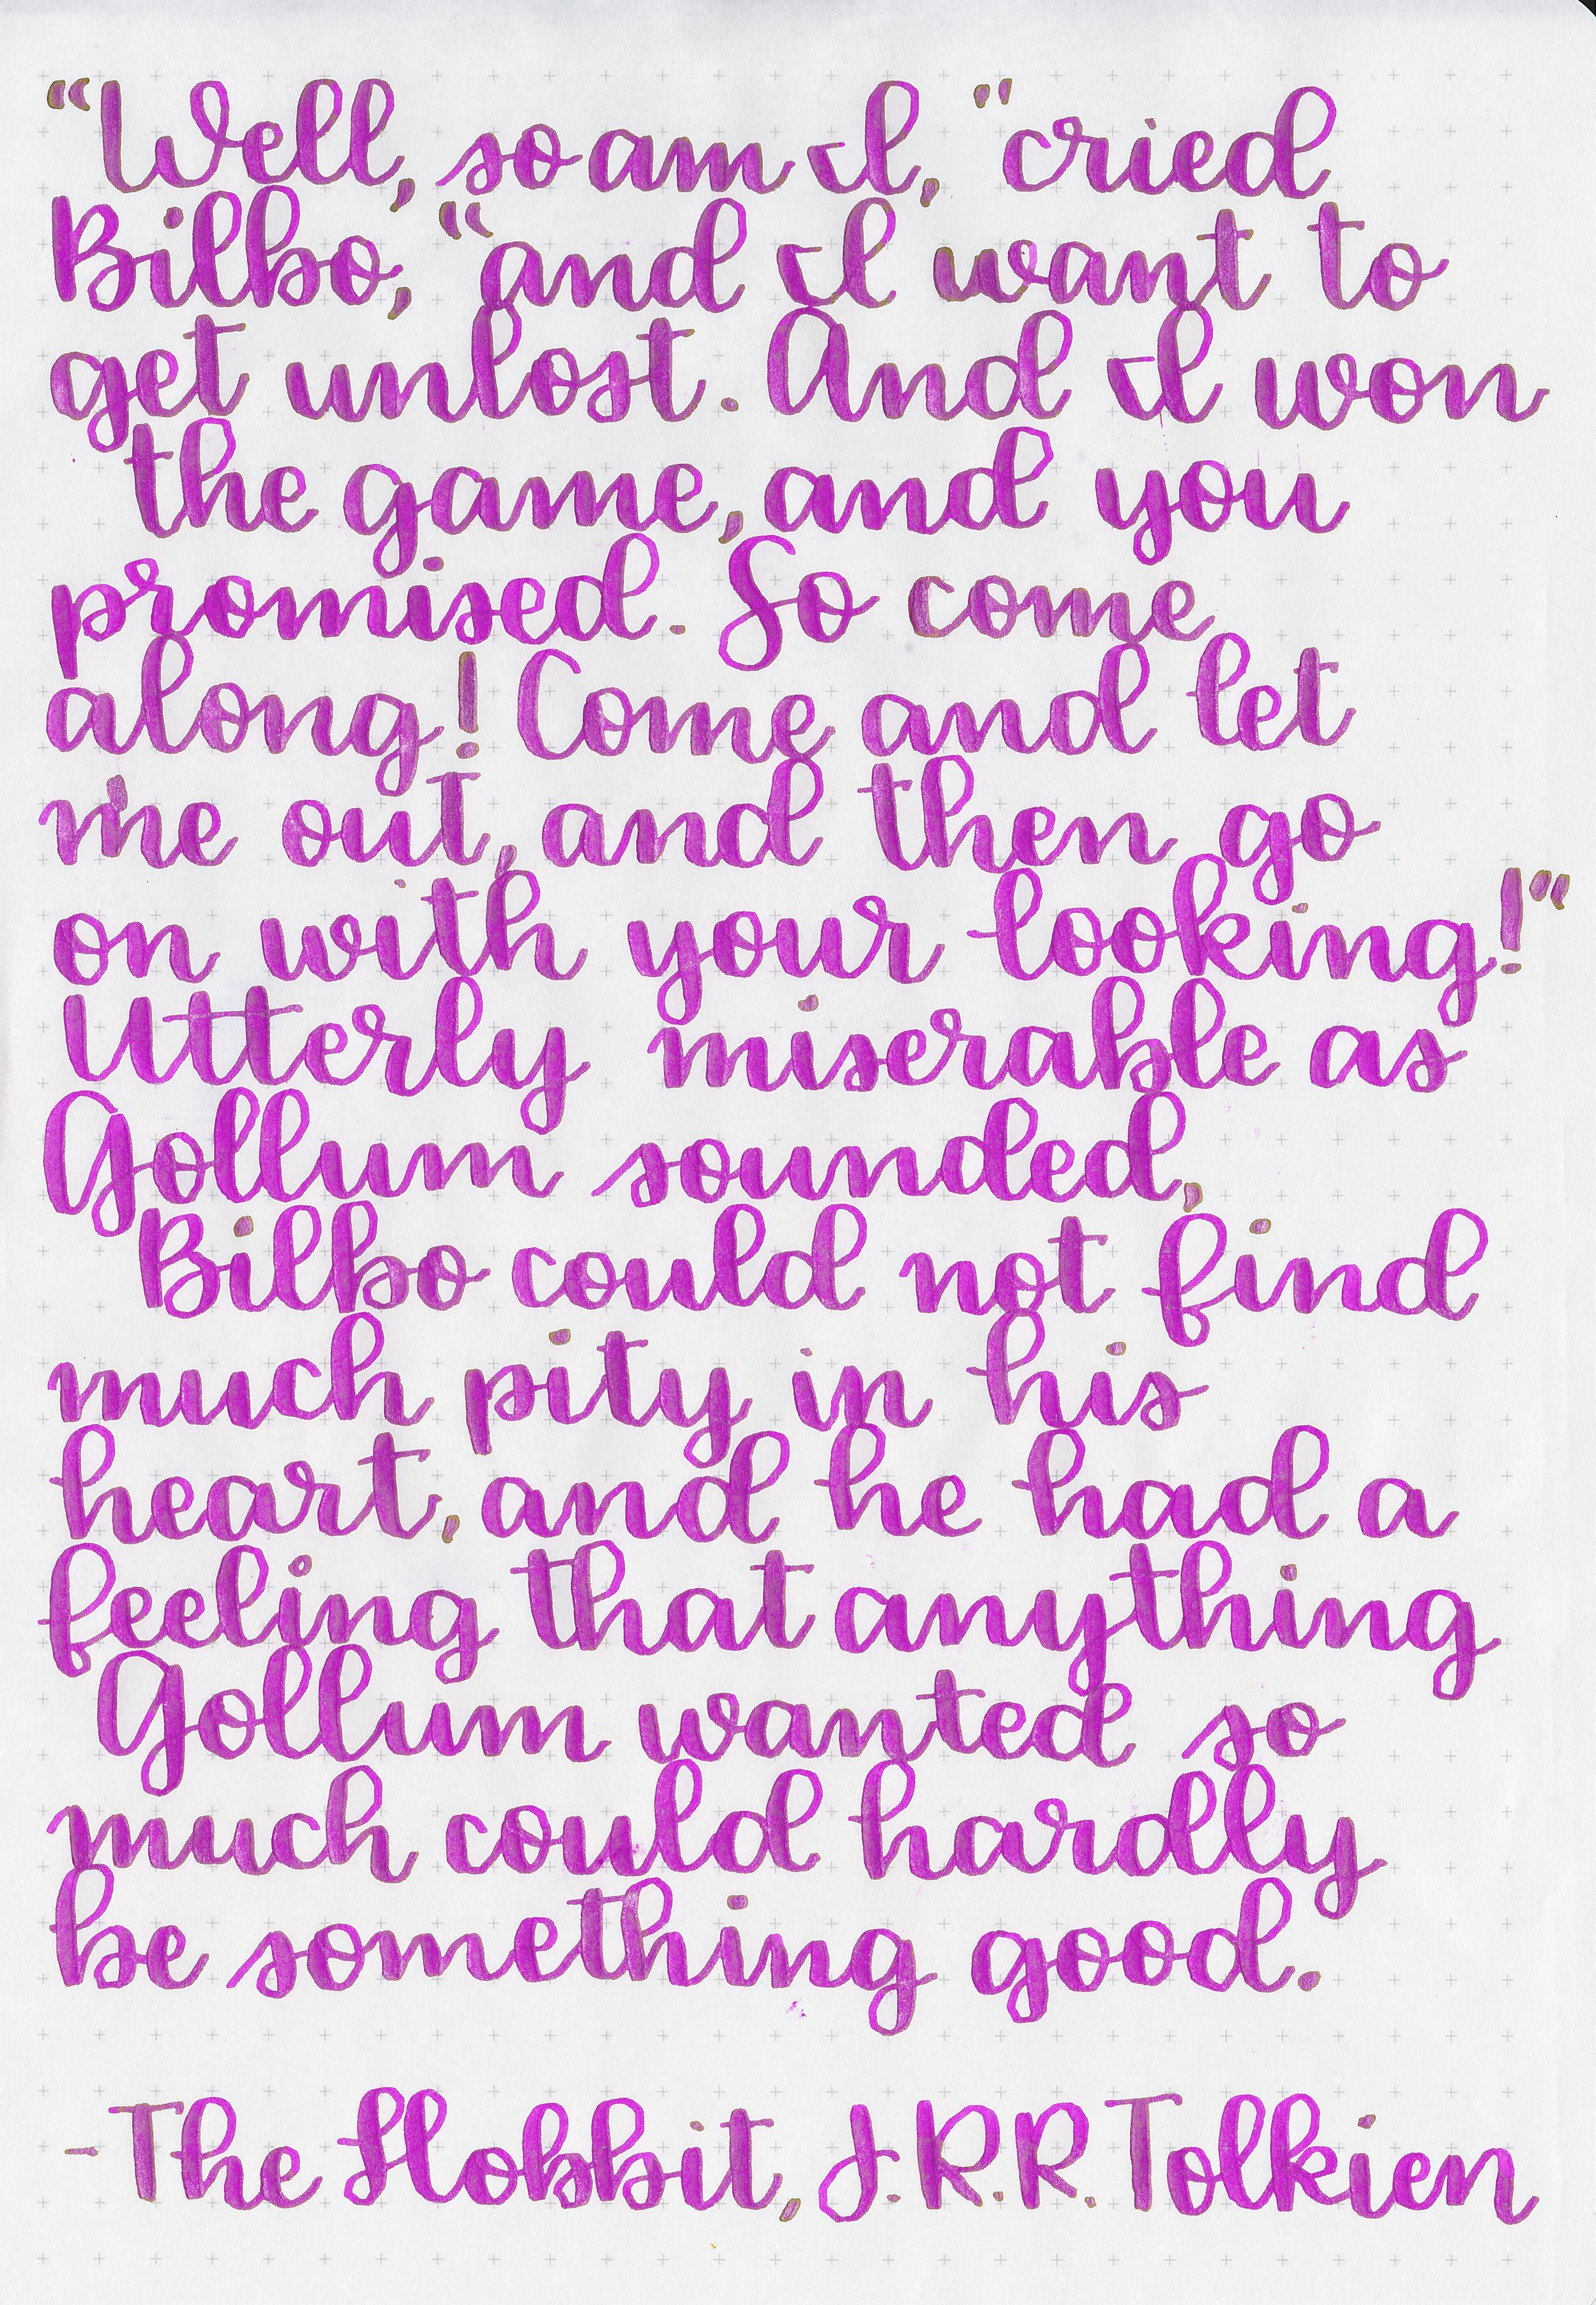 “Well, so am I,” cried
Bilbo, “and I want to
get unlost. And I won
the game, and you
promised. So come
along! Come and let
me out, and then go
on with your looking!”
Utterly miserable as
Gollum sounded,
Bilbo could not find
much pity in his
heart, and he had a
feeling that anything
Gollum wanted so
much could hardly
be something good.
-The Hobbit, J.R.R. Tolkien